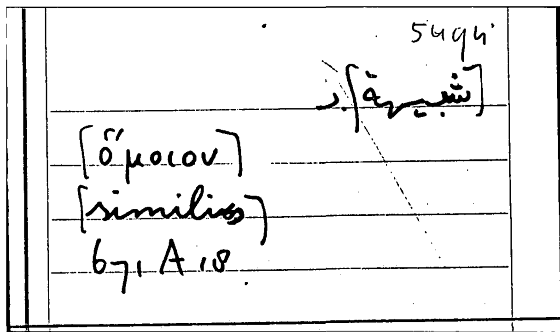 5494
[شبيهة] بـ
[ὅμοιον]
[similis]
67, A 18